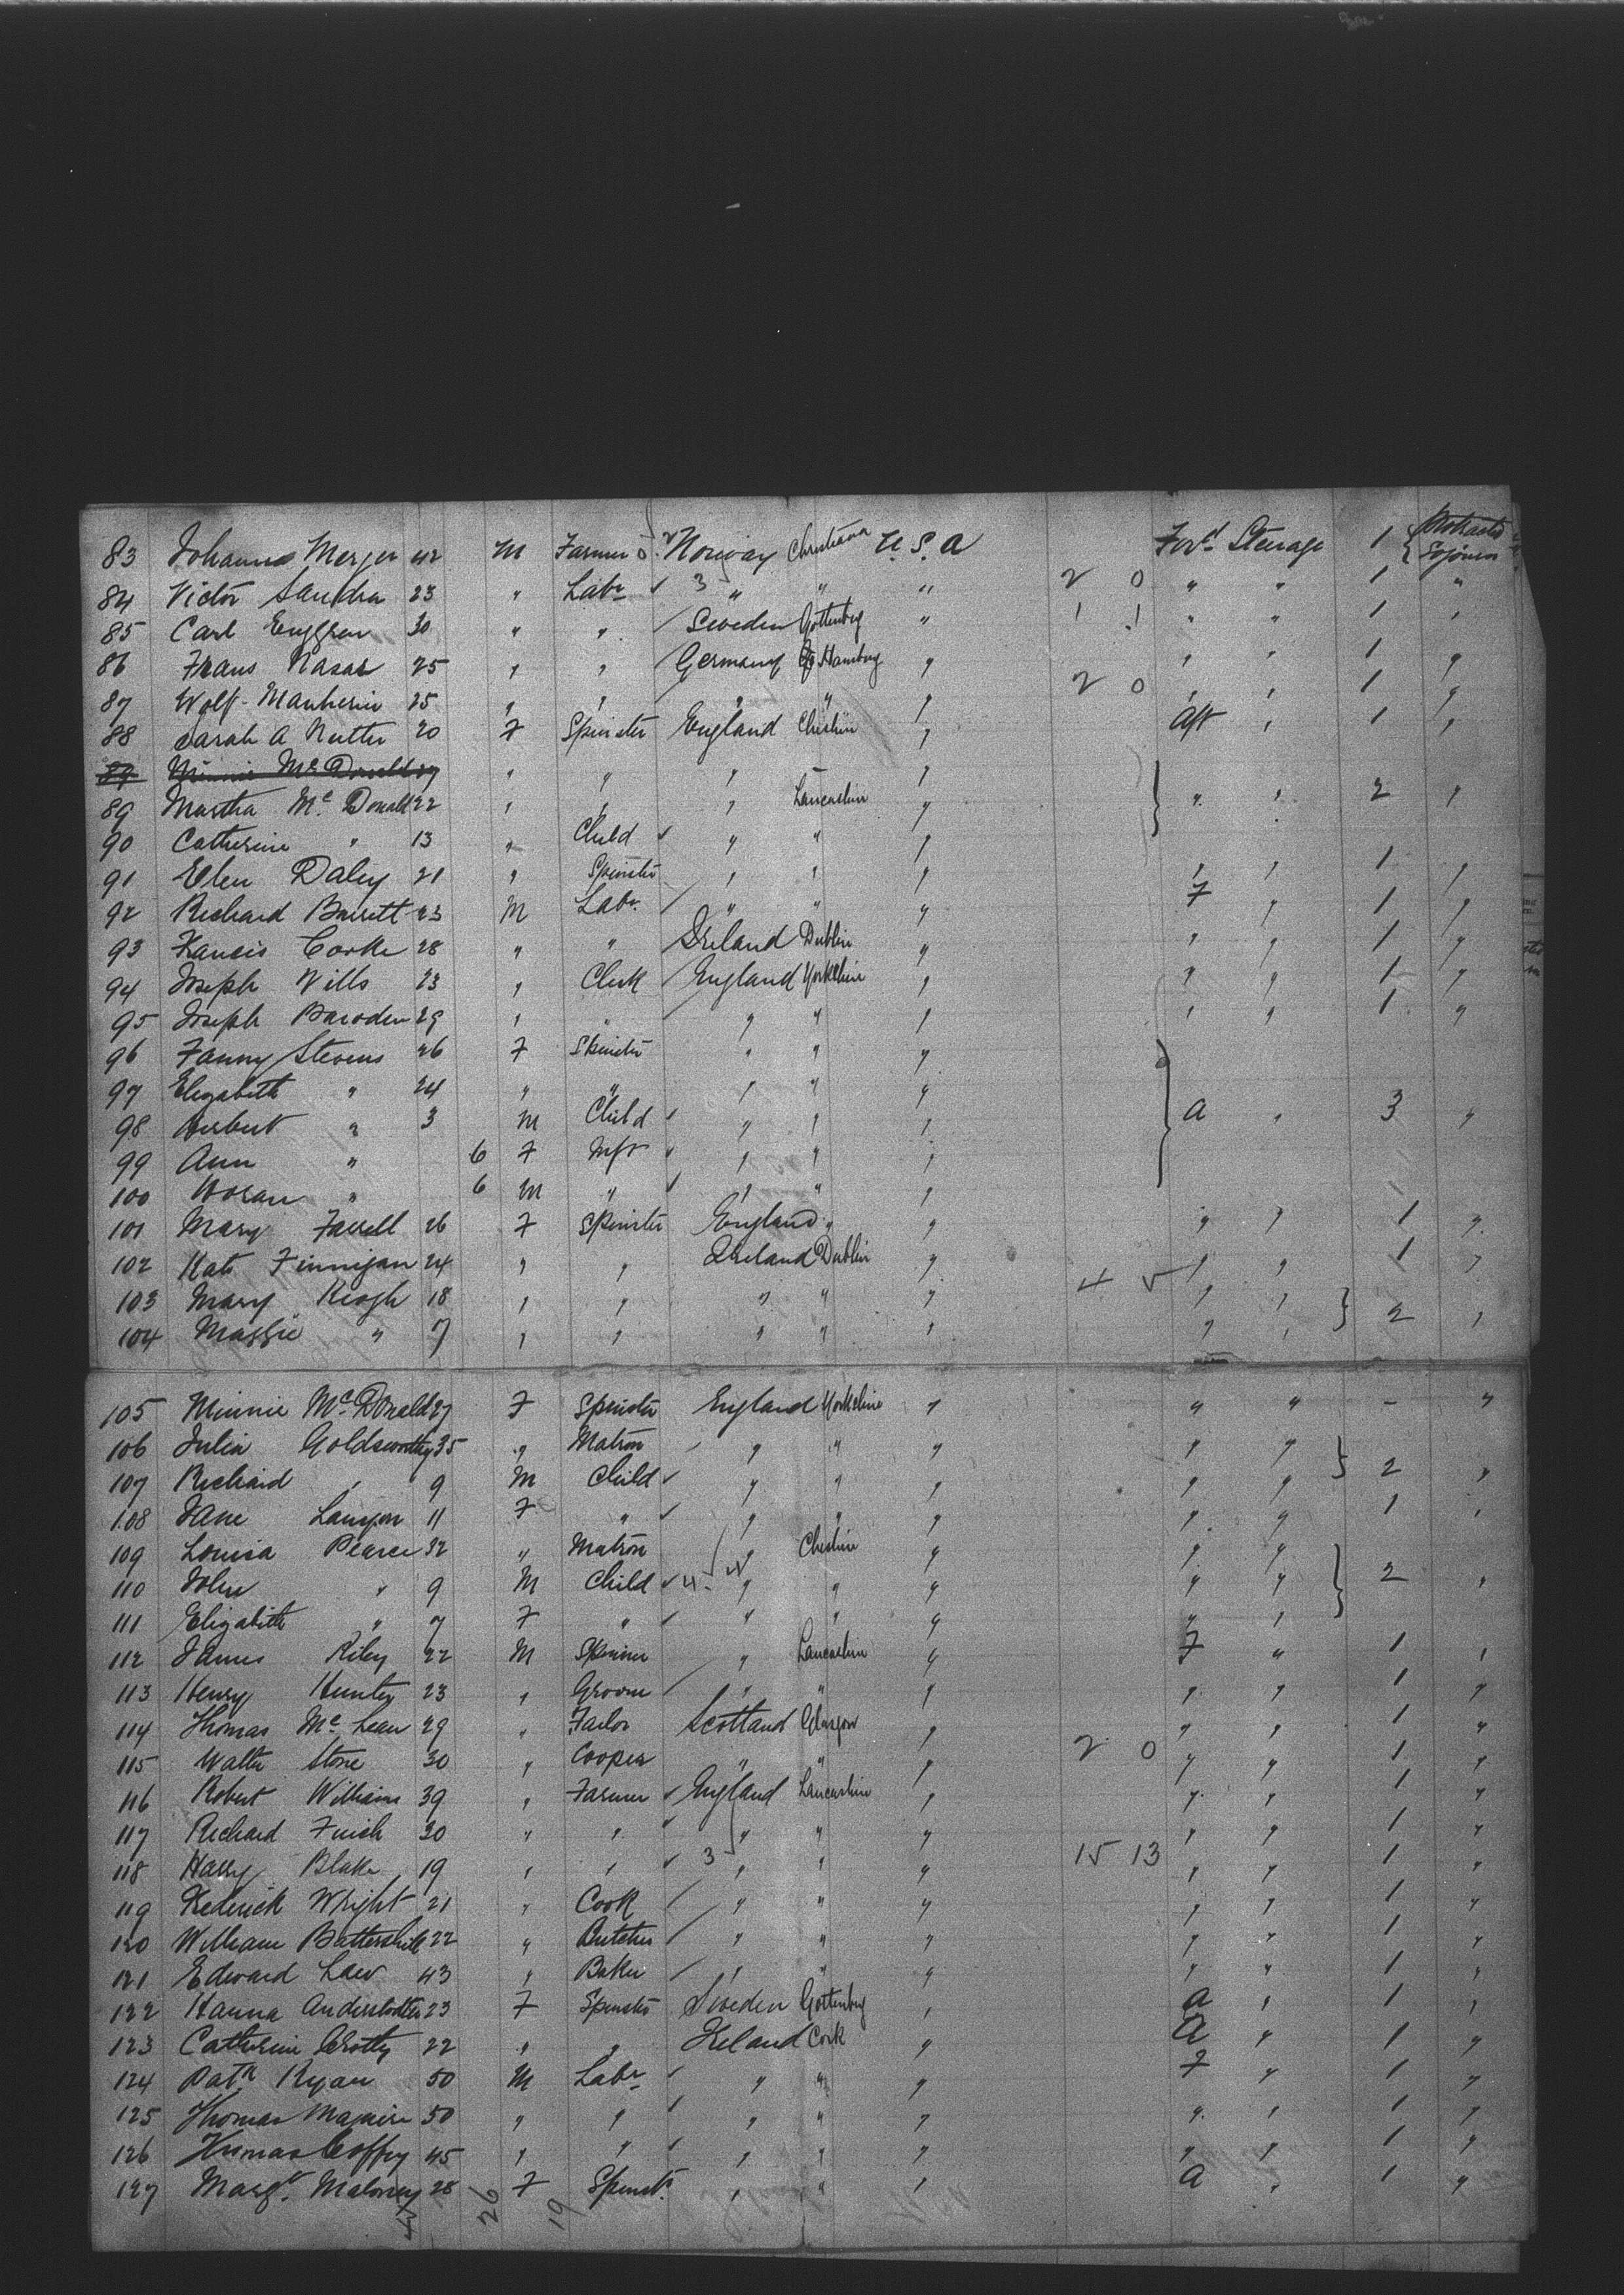 83 Johanns Merger 42 M Farmer 5 Norway Christiana U.S.A Ford Steerage 1 { Protracted Sojourn
84 Victor Sandra 23 " Labr ✓ 3 " " " 2 0 " " 1 "
85 Carl Enggren 30 " " / Sweden Gottenberg " 1 1 " " 1 "
86 Frans Nasar 25 " " / Germany Hamburg " " " 1 "
87 Wolf Manheim 25 " " / " " " 2 0 " " 1 "
88 Sarah A Nutter 20 F Spinster England Cheshire " Aft " 1 "
89 Minnie Mc Donald 27 " " " "
89 Martha Mc Donald 22 " " " Lancashire " } " " 2 "
90 Catherine " 13 " Child ✓ " " "
91 Elen Daley 21 " Spinster " " " " " 1 "
92 Richard Barrett 23 M Labr / " " " F " 1 "
93 Francis Cooke 28 " " Ireland Dublin " " " 1 "
94 Joseph Wills 23 " Clerk / England Yorkshire " " " 1 "
95 Joseph Baroden 29 " " / " " " " " 1 "
96 Fanny Stevens 26 F Spinster " " "
97 Elizabeth " 24 " " " " "
98 Herbert " 3 M Child ✓ " " " } A " 3 "
99 Ann " 6 F Inft ✓ " " "
100 " 6 M " ✓ " " "
101 Mary Farrell 26 F Spinster England " " " " 1 "
102 Kate Finnigan 24 " " Ireland Dublin " " " 1 "
103 Mary Keogh 18 " " " " " 4 5 " " } 2 "
104 Maggie " 7 " " " " " " "
105 Minnie Mc Donald 27 F Spinster England Yorkshire " " " - "
106 Julia Goldsworthy 35 " Matron / " " " " " } 2 "
107 Richard " 9 M Child ✓ " " " " "
108 Jane Lanyon 11 F " ✓ " " " " " 1 "
109 Louisa Pearce 32 " Matron " Cheshire " " "
110 John " 9 M Child ✓ 4 " " " " " } 2 "
111 Elizabeth " 7 F " ✓ " " " " "
112 James Riley 22 M Spinner " Lancashire " F " 1 "
113 Henry Hunter 23 " Groom / " " " " " 1 "
114 Thomas Mc Lean 29 " Tailor Scotland Glasgow " " " 1 "
115 Walter Stone 30 " Cooper " " " 2 0 " " 1 "
116 Robert Williams 39 " Farmer ✓ England Lancashire " " " 1 "
117 Richard Finch 30 " " ✓ " " " " " 1 "
118 Harry Blake 19 " " ✓ 3 " " " 15 13 " " 1 "
119 Frederick Wright 21 " Cook / " " " " " 1 "
120 William Battershill 22 " Butcher / " " " " " 1 "
121 Edward Law 43 " Baker / " " " " " 1 "
122 Hanna 23 F Spinster Sweden Gottenberg " A " 1 "
123 Catherine Crotty 22 " " Ireland Cork " A " 1 "
124 Patk Ryan 50 M Labr / " " " F " 1 "
125 Thomas Maguire 50 " " / " " " " " 1 "
126 Thomas Coffey 45 " " ✓ " " " " " 1 "
127 Margt Maloney 28 F Spinstr " " " A " 1 "
26 19